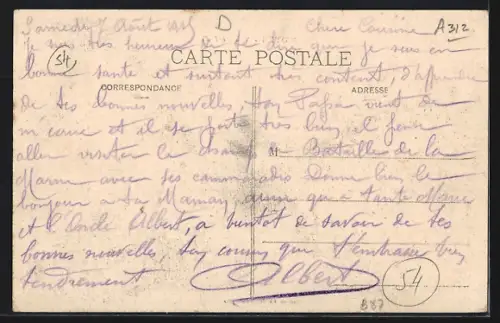 Samedi 7 Août 1915 D Chère Cousine A312
Je suis très heureux de te dire que je suis en
54
bonne santé et surtout très content, d'apprendre
CARTE POSTALE
CORRESPONDANCE ADRESSE
de tes bonnes nouvelles, ton Papa vient de
m'écrire et il se porte très bien, il pense
aller visiter le champ de Batailles de la
M
Marne avec ses camarades Donne bien le
bonjour à ta Maman, ainsi que à tante Marie
et l'Oncle Albert, a bientôt de savoir de tes
bonnes nouvelles, ton cousin que t'embrasse bien
tendrement Albert 54
B87